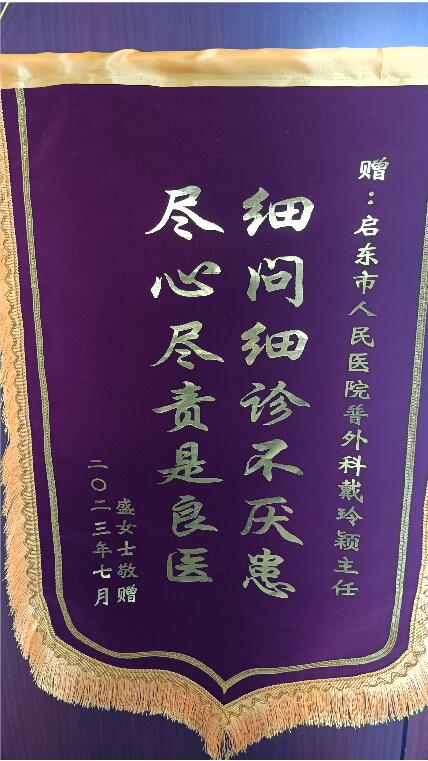 赠：启东市人民医院普外科戴玲颖主任
细问细诊不厌患
尽心尽责是良医
盛女士敬赠
二〇二三年七月